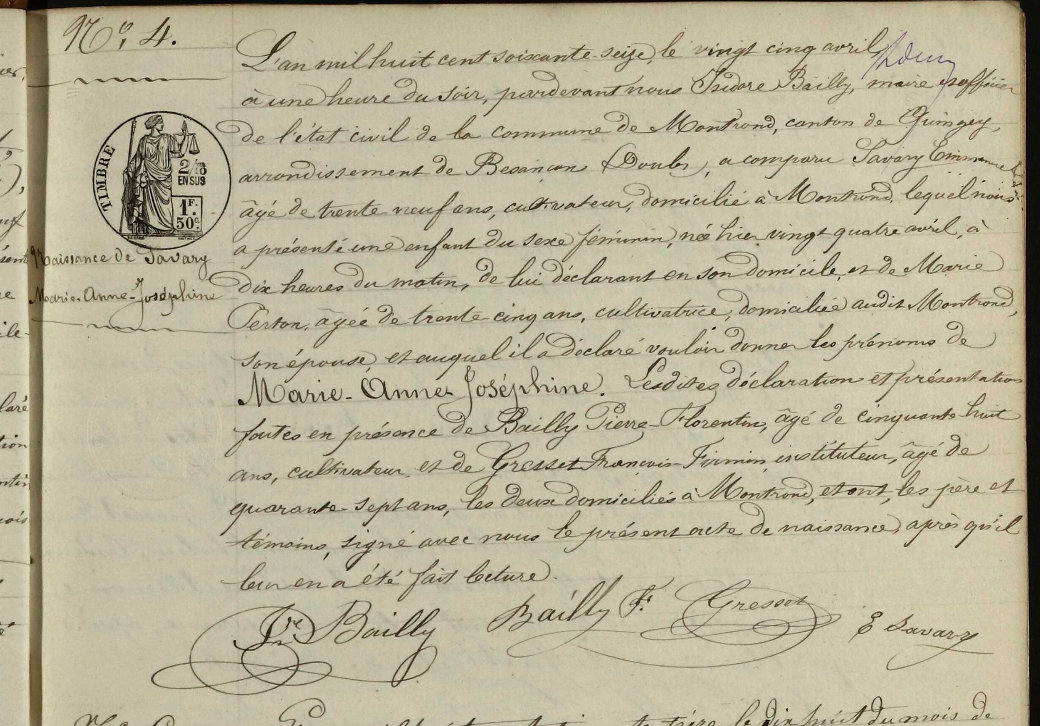 N°. 4.
L'an mil huit cent soixante-seize, le vingt cinq avril,
à une heure du soir, pardevant nous Isidore Bailly, maire et officier
de l'état civil de la commune de Montrond, canton de Quingey,
arrondissement de Besançon (Doubs), a comparu Savary Emmanuel
âgé de trente neuf ans, cultivateur, domicilié à Montrond, lequel nous
a présenté une enfant du sexe féminin, née hier vingt quatre avril, à
dix heures du matin, de lui déclarant en son domicile, et de Marie
Perton, âgée de trente-cinq ans, cultivatrice, domiciliée audit Montrond,
son épouse, et auquel il a déclaré vouloir donner les prénoms de
Marie-Anne-Joséphine. Lesdites déclaration et présentation
faites en présence de Bailly Pierre-Florentin, âgé de cinquante-huit
ans, cultivateur, et de Gresset François-Firmin, instituteur, âgé de
quarante-sept ans, les deux domiciliés à Montrond, et ont, les père et
témoins, signé avec nous le présent acte de naissance, après qu'il
leur en a été fait lecture.
TIMBRE
2/10
EN SUS
1F.
50c.
Naissance de Savary
Marie-Anne-Joséphine
Bailly
Bailly F.
Gresset
E Savary
le dix huit du mois de